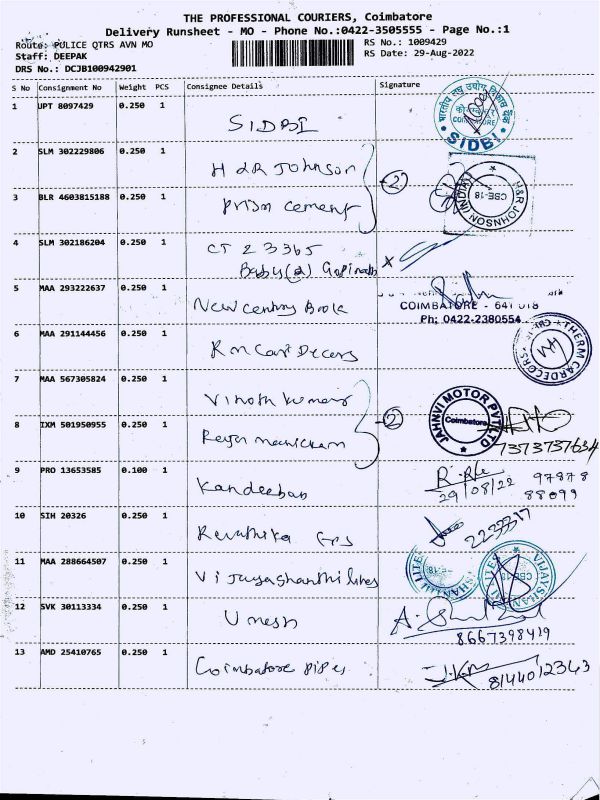 THE PROFESSIONAL COURIERS, Coimbatore
Delivery Runsheet - MO - Phone No.:0422-3505555 - Page No.:1
Route: PULICE QTRS AVN MO
RS No.: 1009429
Staff: DEEPAK
RS Date: 29-Aug-2022
DRS No.: DCJB100942901
S No Consignment No Weight PCS Consignee Details Signature
1 JPT 8097429 0.250 1 SIDBI
भारतीय लघु उद्योग विकास बैंक
COIMBATORE
SIDBI
2 SLM 302229806 0.250 1 H & R Johnson
2
H&R JOHNSON (INDIA)
CBE-18
3 BLR 4603815188 0.250 1 Prism cement
4 SLM 302186204 0.250 1 CT 23365
Baby (a) Gopinath x
5 MAA 293222637 0.250 1 New century Book
COIMBATORE - 641 018
Ph: 0422-2380554
6 MAA 291144456 0.250 1 R M Car Decors
THERM CARDECORS
7 MAA 567305824 0.250 1 Vinoth kumar
2
JAHNVI MOTOR PVT LTD
Coimbatore
8 IXM 501950955 0.250 1 Raja manickam
7373737634
9 PRO 13653585 0.100 1 Kandeeban
29/08/22
97878
88099
10 SIH 20326 0.250 1 Revathika
2233317
11 MAA 288664507 0.250 1 Vijayashanthi lites
CBE-18
12 SVK 30113334 0.250 1 Umesh
8667398419
13 AMD 25410765 0.250 1 Coimbatore pipes
8144012343